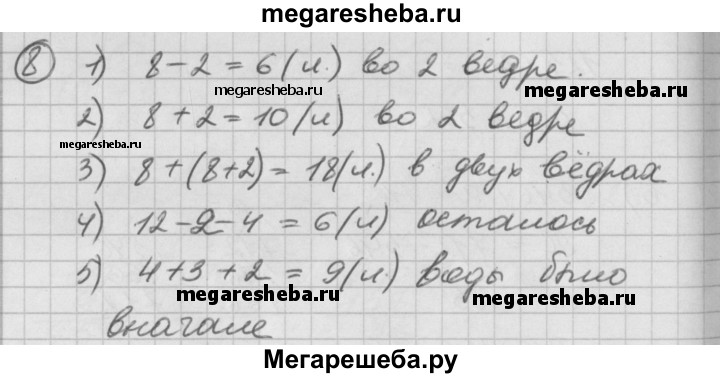 megaresheba.ru
8 1) 8-2=6(л.) во 2 ведре.
megaresheba.ru megaresheba.ru
2) 8+2=10(л) во 2 ведре
megaresheba.ru
3) 8+(8+2)=18(л.) в двух вёдрах
4) 12-2-4=6(л) осталось
5) 4+3+2=9(л.) воды было
megaresheba.ru megaresheba.ru
вначале
Мегарешеба.ру